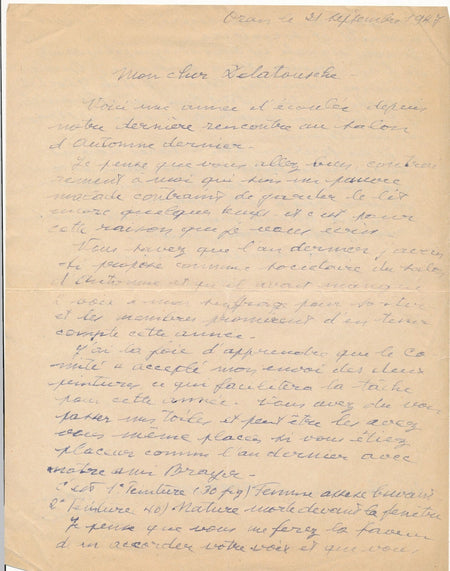 Oran le 21 septembre 1947
Mon cher Delatousche -
Voici une année d'écoulée depuis
notre dernière rencontre au salon
d'Automne dernier.
Je pense que vous allez bien contrai
rement à moi qui suis un pauvre
malade contraint de garder le lit
encore quelque temps et c'est pour
cette raison que je vous écris -
Vous savez que l'an dernier j'avais
été proposé comme sociétaire du Salon
d'Automne et qu'il avait manqué
voix à mon suffrage pour
et les membres promirent d'en tenir
compte cette année -
J'ai la joie d'apprendre que le Co
mité a accepté mon envoi des deux
peintures ce qui facilitera la tâche
pour cette année. Vous avez du voir
passer mes toiles et peut être les avez
vous même placés si vous étiez
placeur comme l'an dernier avec
notre ami Brayer -
C'est 1° Peinture (30 fig) Femme arabe buvant
2° Peinture 40) Nature morte devant la fenêtre
Je pense que vous me ferez la faveur
d'en accorder votre voix et que vous